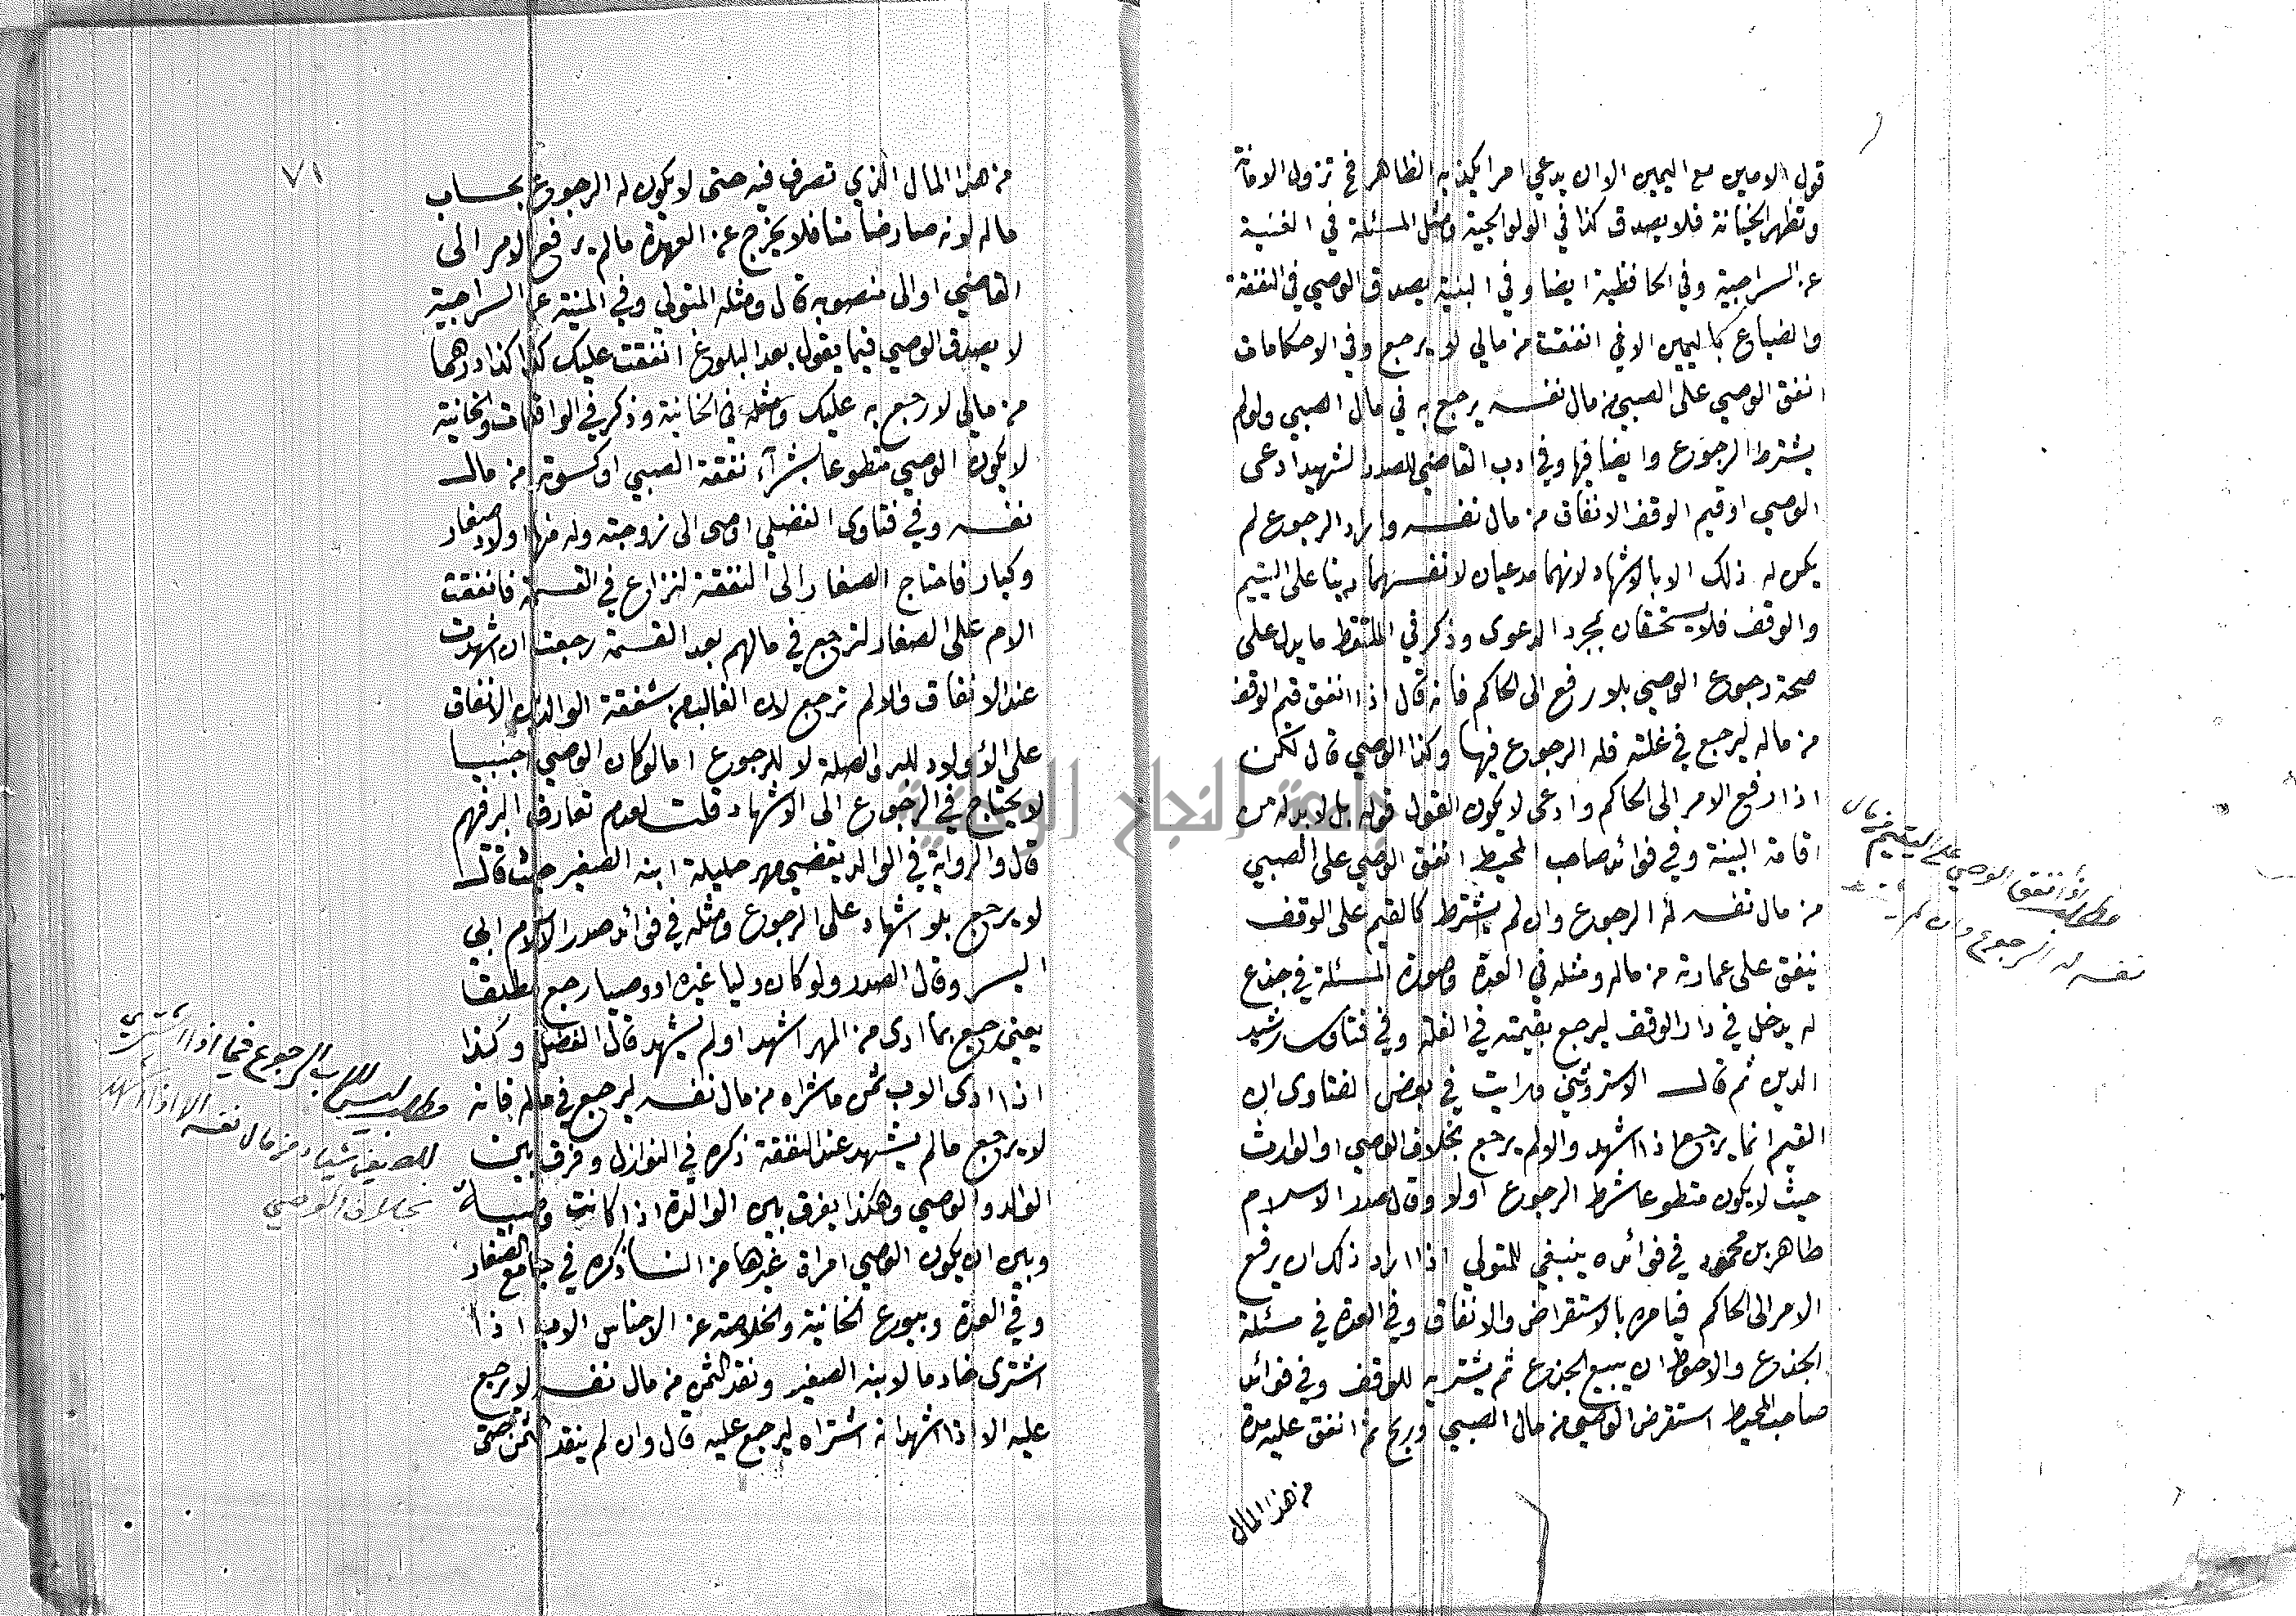 قول الامين مع اليمين الا ان يدعي امرا يكذبه الظاهر فح تزول الامانة
وتظهر الخيانة فلا يصدق كذا في الولوالجية ومثل المسئلة في الغنية
عن السراجية وفي الحافظية ايضا وفي البنية يصدق الوصي في النفقة
والضياع باليمين الا في انفقت من مالي لا يرجع وفي الاحكامات
انفق الوصي على الصبي من مال نفسه يرجع به في مال الصبي ولو لم
يشترط الرجوع وايضا فيها وفي ادب القاضي للصدر الشهيد ادعى
الوصي او قيم الوقف الانفاق من مال نفسه واراد الرجوع لم
يكن له ذلك الا بالاشهاد لانهما مدعيان لانفسهما دينا على اليتيم
والوقف فلا يستحقان بمجرد الدعوى وذكر في الملتقط ما يدل على
صحة رجوع الوصي بلا رفع الى الحاكم فانه قال اذا انفق قيم الوقف
من ماله ليرجع في غلته فله الرجوع فيها وكذا الوصي قال لكن
اذا رفع الامر الى الحاكم وادعى لا يكون القول قوله بل لا بد له من
اقامة البينة وفي فوائد صاحب المحيط انفق الوصي على الصبي
من مال نفسه له الرجوع وان لم يشترط كالقيم على الوقف
ينفق على عمارته من ماله ومثله في العدة وصورة المسئلة في جذع
له يدخل في دار الوقف ليرجع بقيمته في الغلة وفي فتاوى رشيد
الدين ثم قال الاستروشني ورايت في بعض الفتاوى ان
القيم انما يرجع اذا اشهد والا لم يرجع بخلاف الوصي او الوارث
حيث لا يكون متطوعا شرط الرجوع اولا وقال صدر الاسلام
طاهر بن محمود في فوائده ينبغي للمتولي اذا اراد ذلك ان يرفع
الامر الى الحاكم فيامره بالاستقراض والانفاق وفي العدة في مسئلة
الجذع والاحوط ان يبيع الجذع ثم يشتريه للوقف وفي فوائد
صاحب المحيط استقرض الوصي من مال الصبي وربح ثم انفق عليه مدة
من هذا المال
مطلب اذا انفق الوصي على اليتيم من مال
نفسه له الرجوع وان لم
٧١
من هذا المال الذي تصرف فيه حتى لا يكون له الرجوع بحساب
ماله لانه صار ضامنا فلا يخرج عن العهدة مالم يرفع الامر الى
القاضي او الى منصوبه قال ومثله المتولي وفي المنية عن السراجية
لا يصدق الوصي فيما يقول بعد البلوغ انفقت عليك كذا كذا درهما
من مالي لارجع به عليك ومثله في الخانية وذكر في الواقعات والخانية
لا يكون الوصي متطوعا بشرآء نفقة الصبي او كسوته من مال
نفسه وفي فتاوى الفضلي اوصى الى زوجته وله منها اولاد صغار
وكبار فاحتاج الصغار الى النفقة لنزاع في القسمة فانفقت
الام على الصغار لترجع في مالهم بعد القسمة رجعت ان اشهدت
عند الانفاق والا لم ترجع لان الغالب من شفقة الوالدين الانفاق
على الاولاد للبر والصلة لا للرجوع اما لو كان الوصي اجنبيا
لا يحتاج في الرجوع الى الاشهاد قلت لعدم تعارف البر فيهم
قال والرواية في الوالد يقضي مهر حليلة ابنه الصغير حيث قال
لا يرجع بلا اشهاد على الرجوع ومثله في فوائد صدر الاسلام ابي
اليسر وقال الصدر ولو كان وليا غيره او وصيا رجع مطلقا
يعني رجع بما ادى من المهر اشهد او لم يشهد قال الفضلي وكذا
اذا ادى الاب ثمن ما شراه من مال نفسه ليرجع في ماله فانه
لا يرجع مالم يشهد عند النفقة ذكره في النوازل وفرق بين
الوالد والوصي وهكذا يفرق بين الوالدة اذا كانت وصية
وبين ان يكون الوصي امراة غيرها من النسا ذكره في جامع الصغار
وفي العدة وبيوع الخانية والخلاصة عن الاجناس الاب اذا
اشترى خادما لابنه الصغير ونقد الثمن من مال نفسه لا يرجع
عليه الا اذا اشهد انه اشتراه ليرجع عليه قال وان لم ينقد الثمن حتى
مطلب ليس للاب الرجوع فيما اذا اشترى
للصغير شياء من مال نفسه الا اذا اشهد
بخلاف الوصي